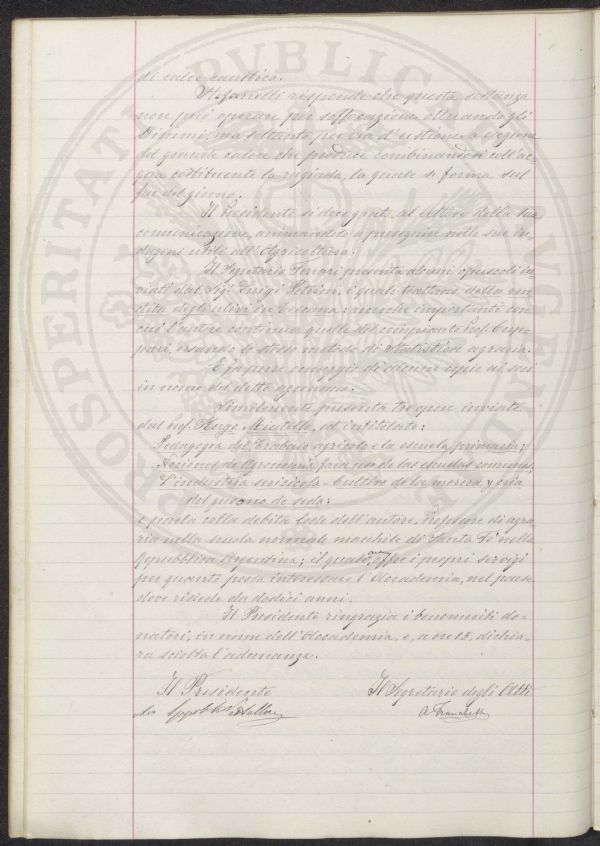 di calce caustica.
Stefanelli risponde che questa sostanza
non può operare per soffocazione otturando gli
stimmi, ma soltanto per via d'ustione a cagione
del grande calore che produce combinandosi coll'ac-
qua costituente la rugiada, la quale si forma sul
far del giorno.
Il Presidente si dice grato al lettore della sua
comunicazione, animandolo a proseguire nelle sue in-
dagini utili all'Agricoltura.
Il Segretario Ferrari presenta alcuni opuscoli in-
viati dal Sig. Luigi Pettini, i quali trattano della ven-
dita degli ulivi in Toscana: ricerche importanti con
cui l'autore continua quelle del compianto
usando lo stesso metodo di Statistica agraria.
E fa pure omaggio di alcune copie ai soci
in nome del detto agronomo.
Similmente presenta tre opere inviate
dal Prof. Ugo Miatello, ed intitolate:
Pedagogia del Trabajo agricolo e la escuela primaria;
Nociones de Agronomia para uso de las escuelas comunes;
L'industria serizicola - Cultivo de la morera y cria
del gusano de seda:
e parla colla debita lode dell'autore, professore di agra-
ria nella scuola normale maschile di Santa Fé nella
Repubblica Argentina; il quale, offre i propri servigi
per quanto possa interessare l'Accademia, nel paese
dove risiede da dodici anni.
Il Presidente ringrazia i benemeriti do-
natori, in nome dell'Accademia, e, a ore 15, dichia-
ra sciolta l'adunanza.
Il Presidente
Il Segretario degli Atti
A. Franchetti
PROSPERITATI PVBLICAE AVGENDAE